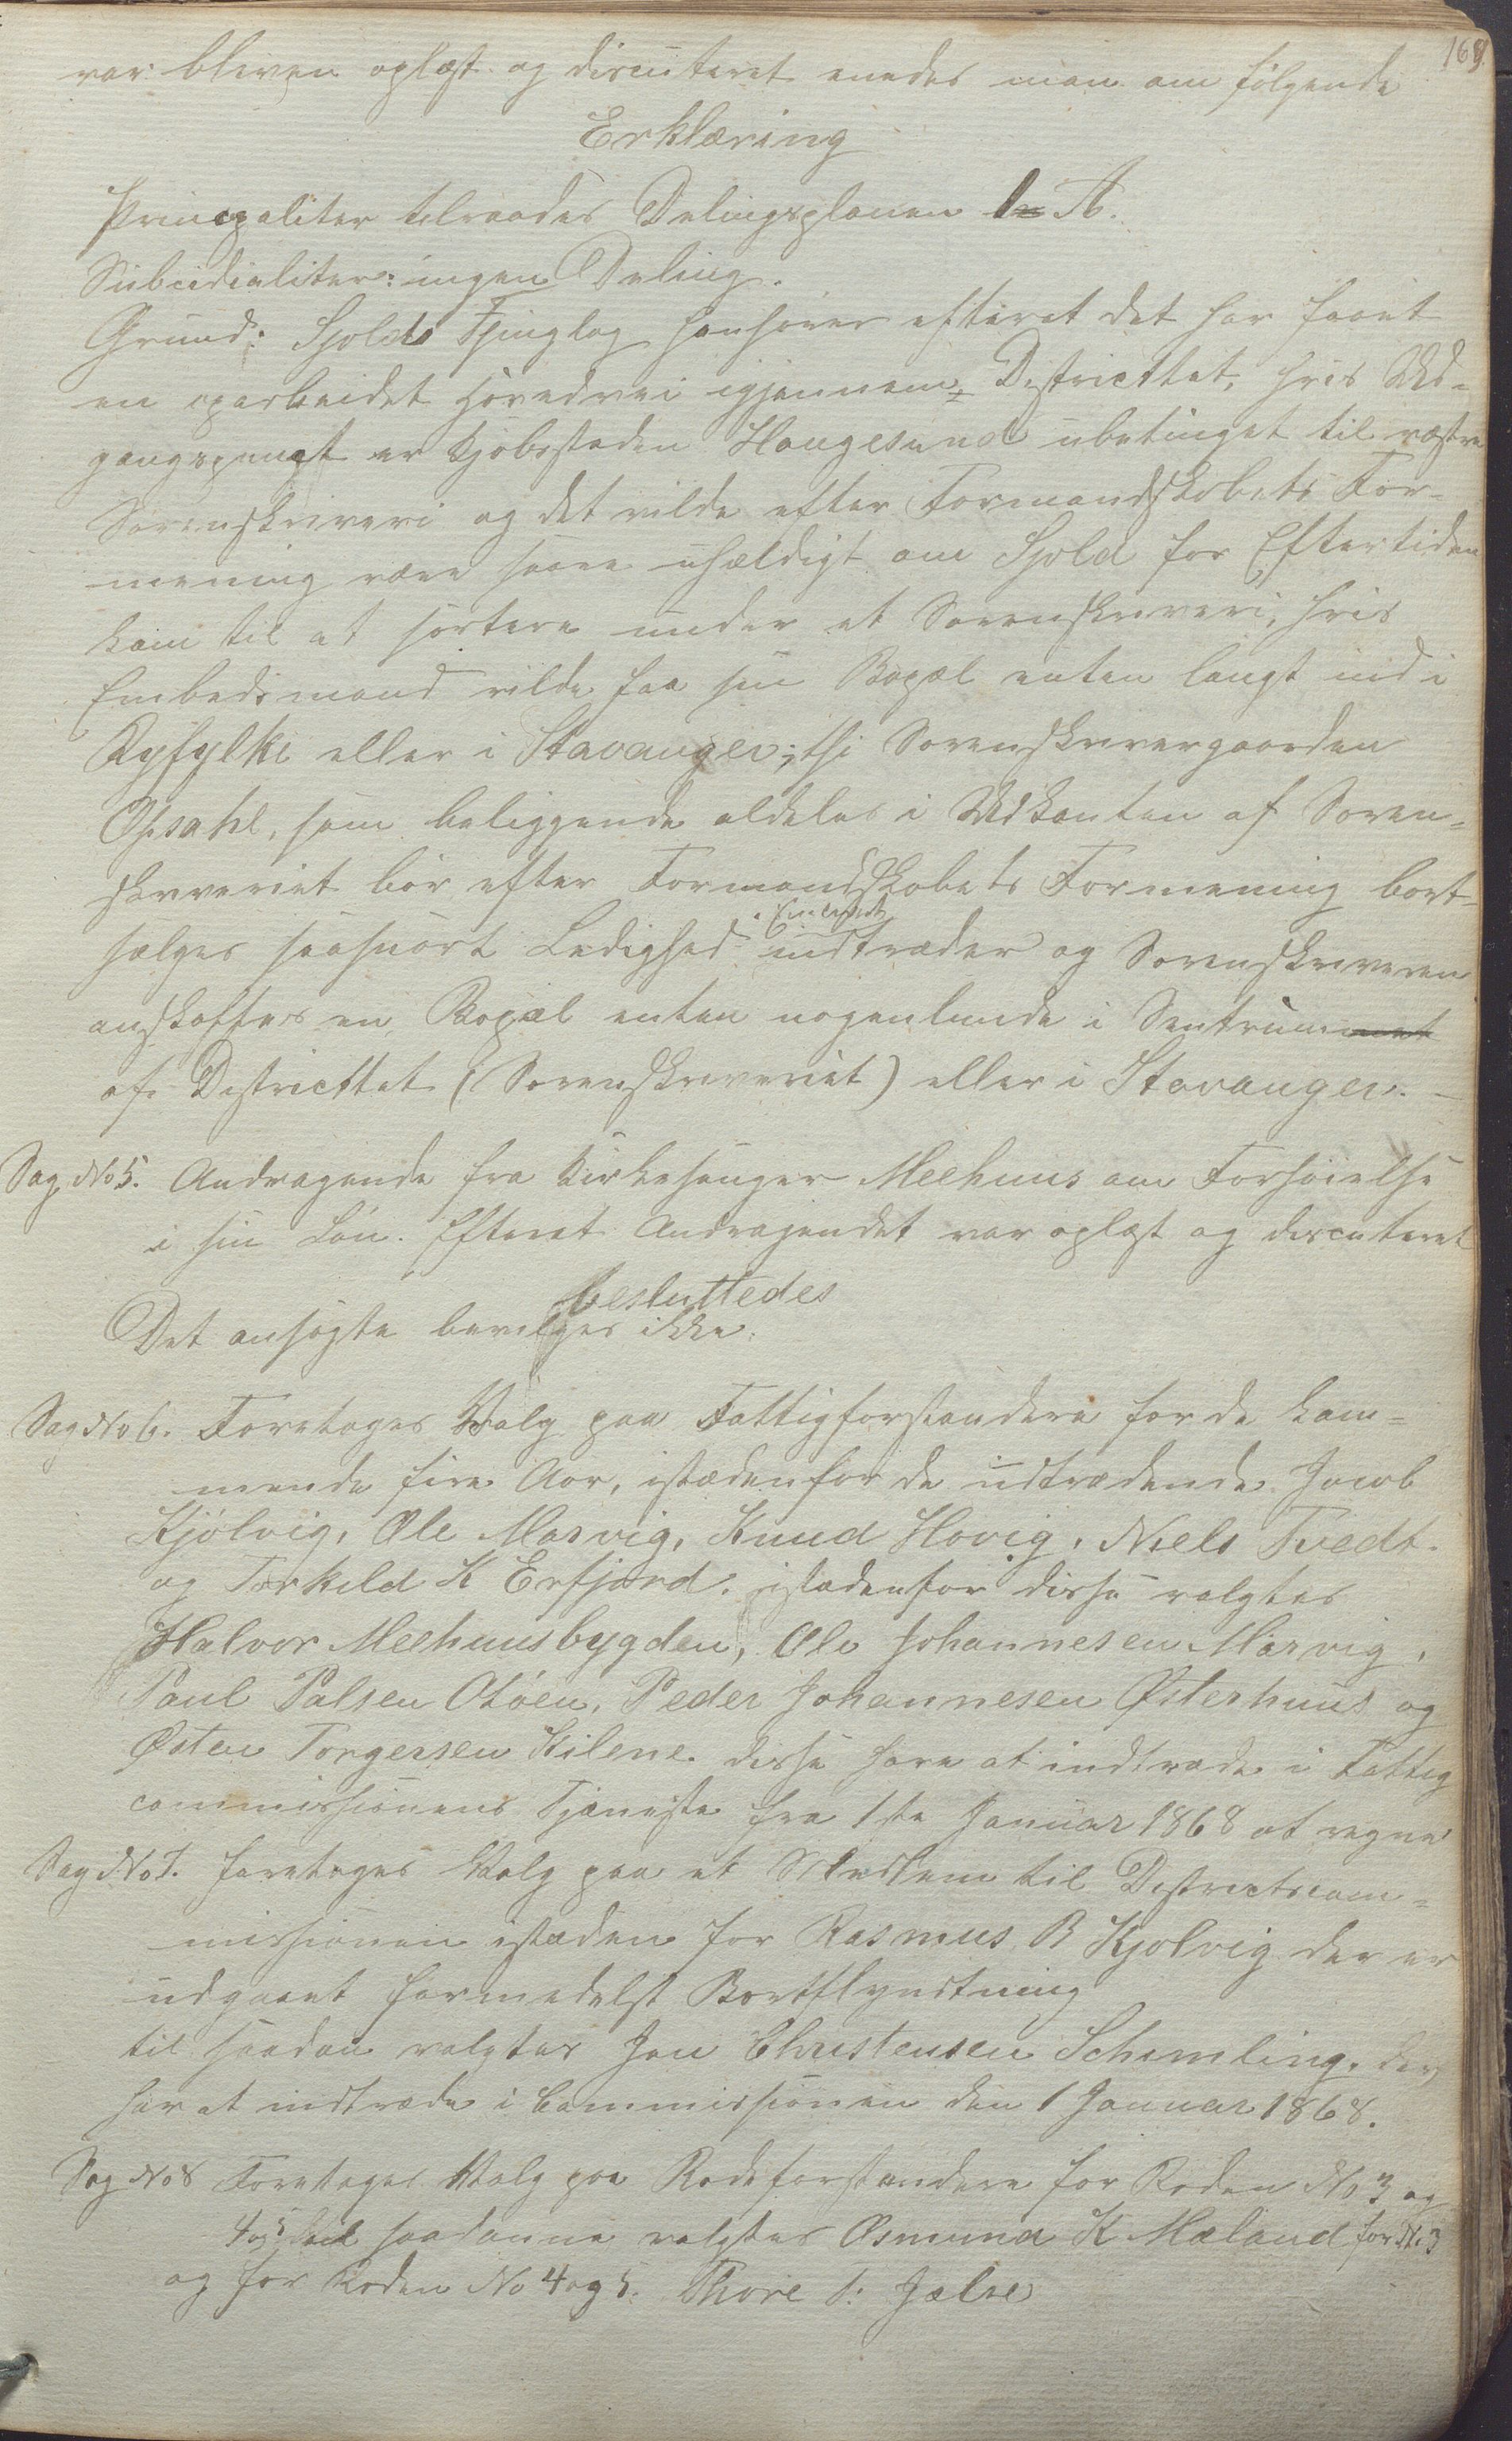 169.
var bleven oplæst og discuteret enedes man om følgende
Erklæring
Principaliter tilraades Delingsplanen A.
Subcidialiter: ingen Deling.
Grund: Skjolds Thinglag henhører efteret det har faaet
en oparbeidet Hovedvei igjennem Districttet, hvis Ud-
gangspunct er Kjøbstaden Haugesund ubetinget til vestre
Sorenskriveri og det vilde efter Formandskabets For-
mening være saare uheldigt om Skjold for Eftertiden
kom til at sortere under et Sorenskriveri, hvis
Embedsmand vilde faa sin Bopæl enten langt ind i
Ryfylke eller i Stavanger; thi Sorenskrivergaarden
Opsahl, som beliggende aldeles i Udkanten af Soren-
skriveriet bør efter Formandskabets Formening bort-
sælges saasnart Ledighed i Embedet indtræder og Sorenskriveren
anskaffes en Bopæl enten nogenlunde i Sentrummet
af Districttet (Sorenskriveriet) eller i Stavanger. –
Sag No 5. Andragende fra Kirkesanger Meehuus om Forhøielse
i sin Løn. Efteret Andragendet var oplæst og discuteret
besluttedes
Det ansøgte bevilges ikke.
Sag No 6. Foretoges Valg paa Fattigforstandere for de kom-
mende fire Aar, istædenfor de udtrædende Jacob
Kjølvig, Ole Marvig, Knud Hovig, Niels Tvedt.
og Torkild K Erfjord. istædenfor disse valgtes
Halvor Meehuusbygden, Ole Johannesen Marvig,
Paul Palsen Otøen, Peder Johannesen Østerhuus og
Østen Torgersen Kilene. disse have at indtræde i Fattig
commissionens Tjeneste fra 1ste Januar 1868 at regne
Sag No 7. foretoges Valg paa et Medlem til Districtscom-
missionen istæden for Rasmus B Kjolvig der er
udgaaet formedelst Bortflyndtning
til saadan valgtes Jon Christensen Schimling. der
har at indtræde i Commissionen den 1 Januar 1868.
Sag No 8 Foretoges Valg paa Rodeforstandere for Roden No 3 og
4 og 5 saadanne valgtes Osmund K Mæland for No 3
og for Roden No 4 og 5. Thore T: Jælse